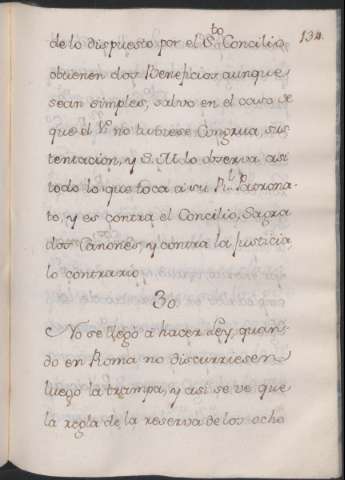 134.
de lo dispuesto por el S.to Concilio,
obtienen dos Beneficios aunque
sean simples, salvo en el caso de
que el 1.º no tubiese Congrua sus
tentacion, y S. M. lo observa asi
todo lo que toca a su R.l Patrona-
to, y es contra el Concilio, Sagra
dos Canones, y contra la Justicia,
lo contrario.
30.
No se llegó a hacer Ley, quan-
do en Roma no discurriesen
luego la trampa, y asi se ve que
la regla de la reserva de los ocho